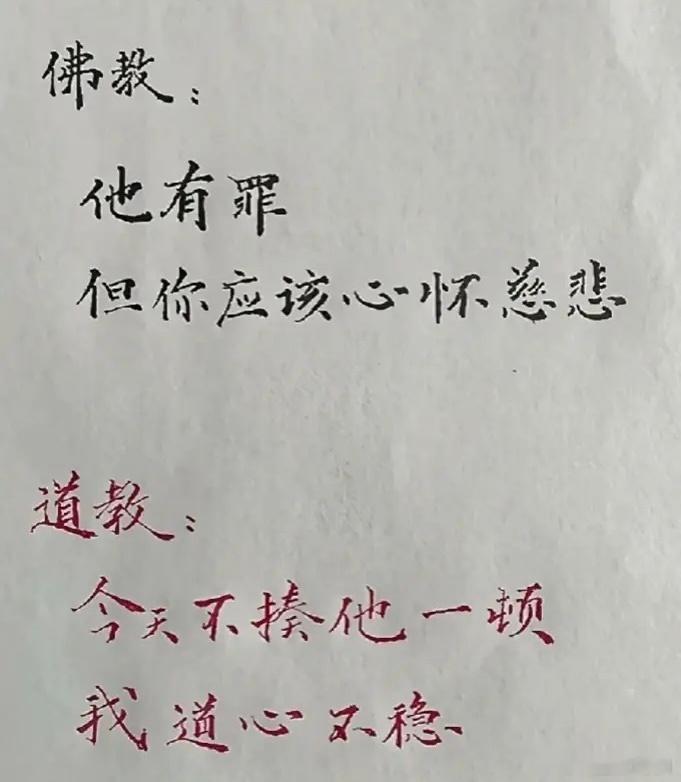 佛教：
他有罪
但你应该心怀慈悲
道教：
今天不揍他一顿
我道心不稳